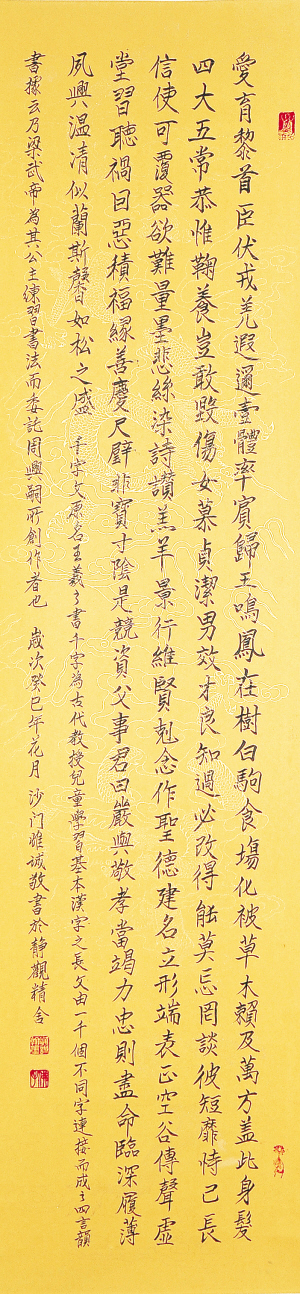 愛育黎首臣伏戎羌遐邇壹體率賓歸王鳴鳳在樹白駒食場化被草木賴及萬方盖此身髮
四大五常恭惟鞠養豈敢毀傷女慕貞潔男效才良知過必改得能莫忘罔談彼短靡恃己長
信使可覆器欲難量墨悲絲染詩讚羔羊景行維賢剋念作聖德建名立形端表正空谷傳聲虛
堂習聽禍因惡積福緣善慶尺璧非寶寸陰是競資父事君曰嚴與敬孝當竭力忠則盡命臨深履薄
夙興温凊似蘭斯馨如松之盛 千字文原名王羲之書千字為古代教授兒童學習基本漢字之長文由一千個不同字連接而成之四言韻
書據云乃梁武帝為其公主練習書法而委託周興嗣所創作者也 歲次癸巳年花月 沙门雅诚敬書於静觀精舍